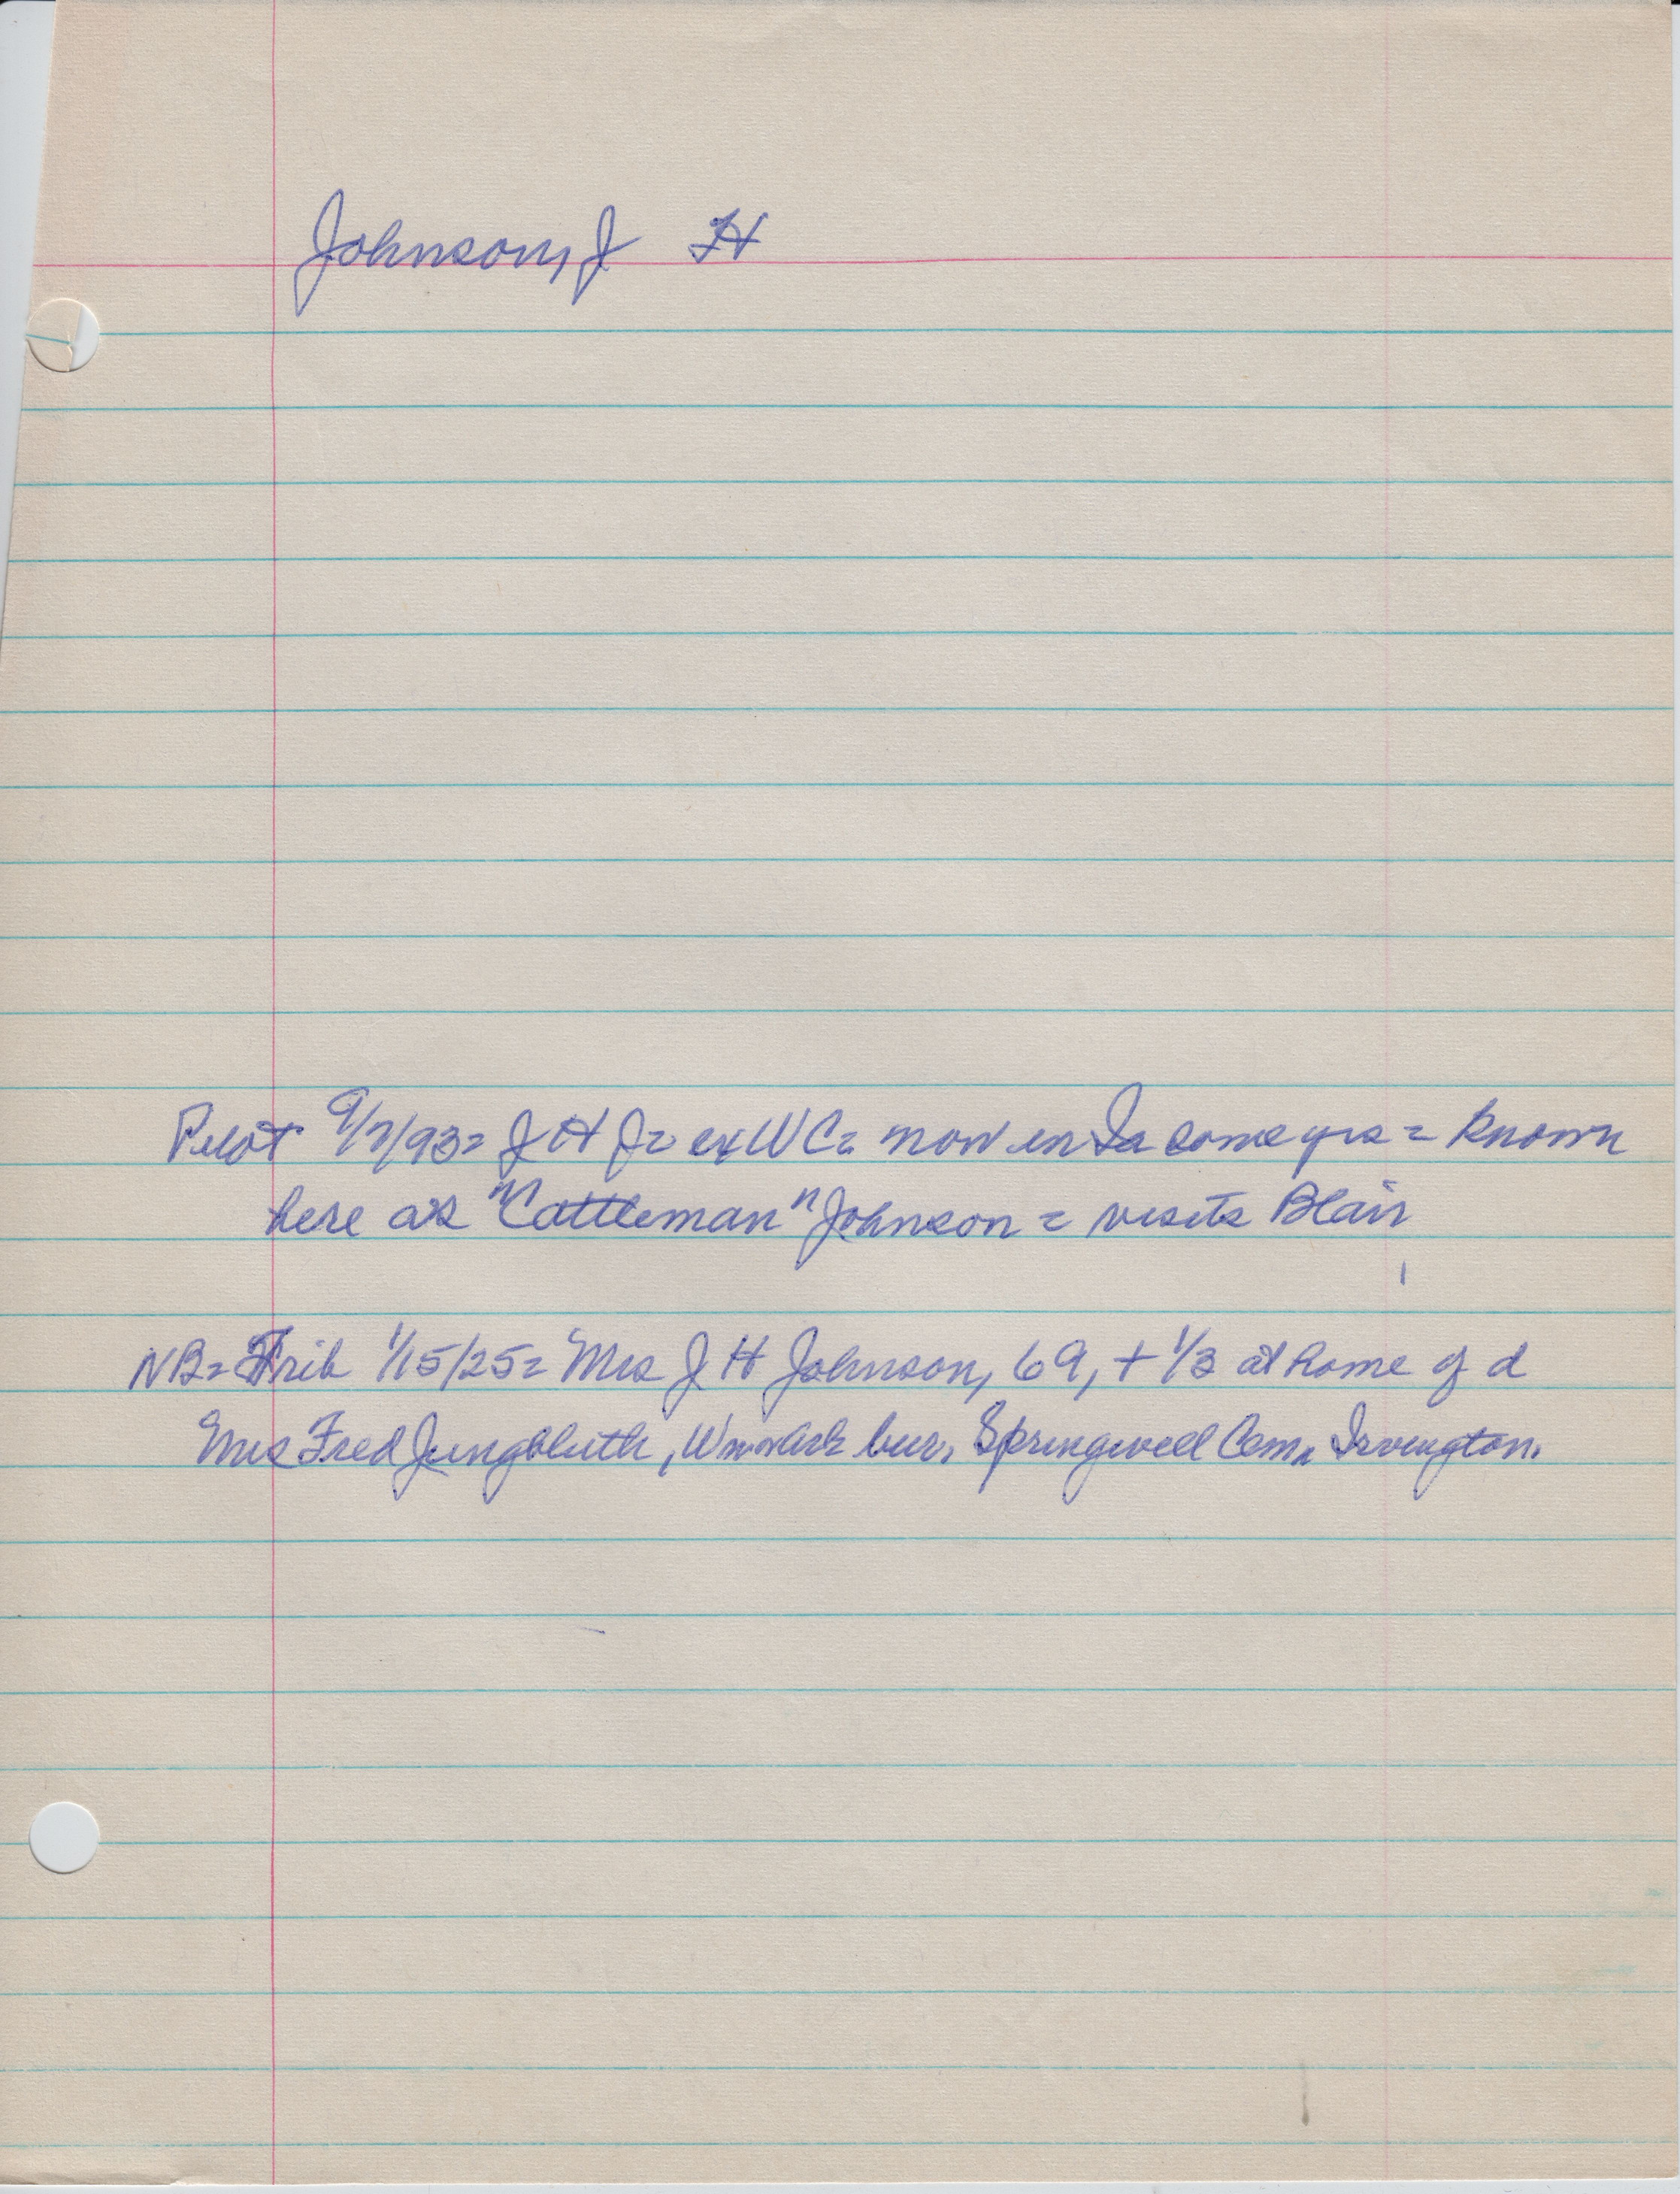 Johnson, J H
Pilot 9/7/93= J H J= ex WC= now in Ia some yrs = known
here as "Cattleman" Johnson = visits Blair
NB= Trib 1/15/25= Mrs J H Johnson, 69, + 1/3 at home of d
Mrs Fred Jungbluth, bur. Springwell Cem, Irvington.